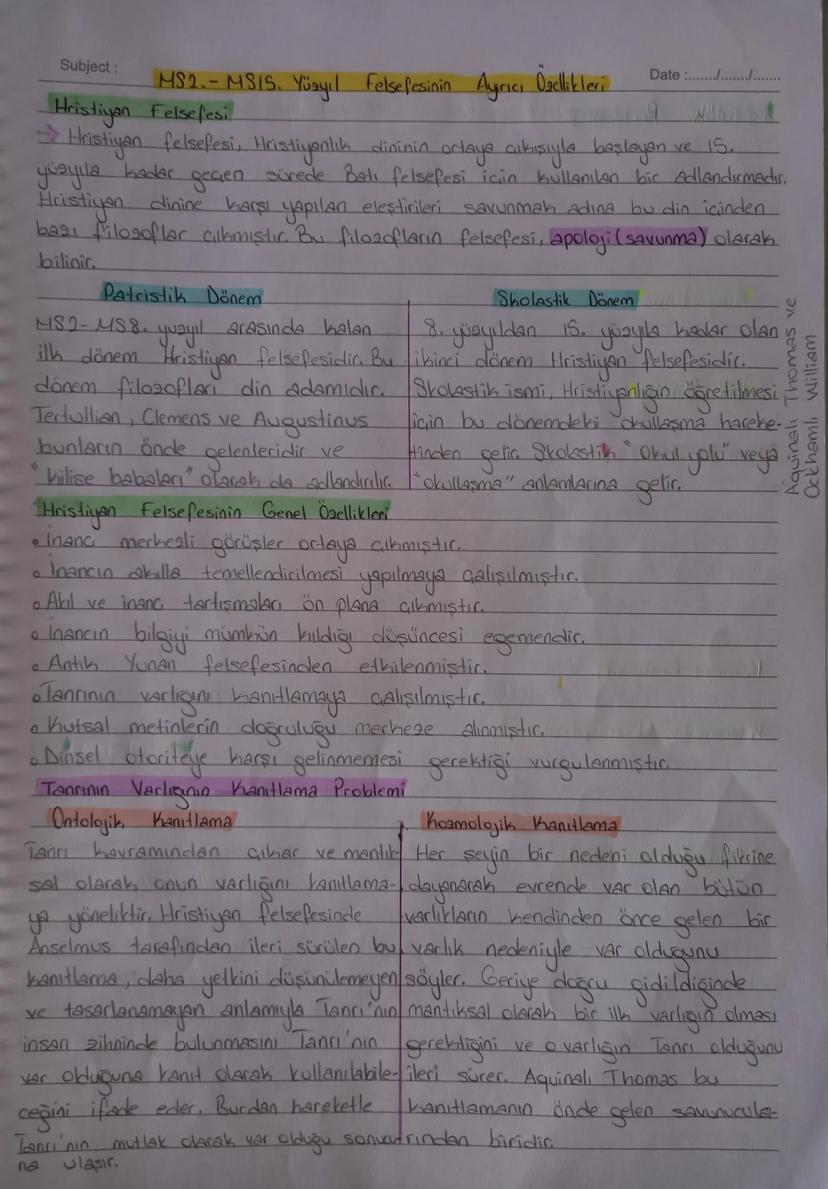 Subject :
Date :....../....../......
MS2. - MS15. Yüzyıl Felsefesinin Ayrıcı Özellikleri
Hristiyan Felsefesi
→ Hristiyan felsefesi, Hristiyanlık dininin ortaya çıkışıyla başlayan ve 15.
yüzyıla kadar geçen sürede Batı felsefesi için kullanılan bir adlandırmadır.
Hristiyan dinine karşı yapılan eleştirileri savunmak adına bu din içinden
bazı filozoflar çıkmıştır. Bu filozofların felsefesi, apoloji (savunma) olarak
bilinir.
Patristik Dönem
MS2-MS8. yüzyıl arasında kalan
ilk dönem Hristiyan felsefesidir. Bu
dönem filozofları din adamıdır.
Tertullian, Clemens ve Augustinus
bunların önde gelenleridir ve
"kilise babaları" olarak da adlandırılır.
Skolastik Dönem
8. yüzyıldan 15. yüzyıla kadar olan
ikinci dönem Hristiyan felsefesidir.
Skolastik ismi, Hristiyanlığın öğretilmesi
için bu dönemdeki okullaşma hareke-
tinden gelir. Skolastik "Okul yolu" veya
"okullaşma" anlamlarına gelir.
Aquinalı Thomas ve
Ockhamlı William
Hristiyan Felsefesinin Genel Özellikleri
• İnanç merkezli görüşler ortaya çıkmıştır.
• İnancın akılla temellendirilmesi yapılmaya çalışılmıştır.
• Akıl ve inanç tartışmaları ön plana çıkmıştır.
• İnancın bilgiyi mümkün kıldığı düşüncesi egemendir.
• Antik Yunan felsefesinden etkilenmiştir.
• Tanrının varlığını kanıtlamaya çalışılmıştır.
• Kutsal metinlerin doğruluğu merkeze alınmıştır.
• Dinsel otoriteye karşı gelinmemesi gerektiği vurgulanmıştır.
Tanrının Varlığının Kanıtlama Problemi
Ontolojik Kanıtlama
Tanrı kavramından çıkar ve mantık-
sal olarak onun varlığını kanıtlama-
ya yöneliktir. Hristiyan felsefesinde
Anselmus tarafından ileri sürülen bu
kanıtlama, daha yetkini düşünülemeyen
ve tasarlanamayan anlamıyla Tanrı'nın
insan zihninde bulunmasını Tanrı'nın
var olduğuna kanıt olarak kullanılabile-
ceğini ifade eder. Burdan hareketle
Tanrı'nın mutlak olarak var olduğu sonucu
na ulaşır.
Kozmolojik Kanıtlama
Her şeyin bir nedeni olduğu fikrine
dayanarak evrende var olan bütün
varlıkların kendinden önce gelen bir
varlık nedeniyle var olduğunu
söyler. Geriye doğru gidildiğinde
mantıksal olarak bir ilk varlığın olması
gerektiğini ve o varlığın Tanrı olduğunu
ileri sürer. Aquinalı Thomas bu
kanıtlamanın önde gelen savunucula-
rından biridir.